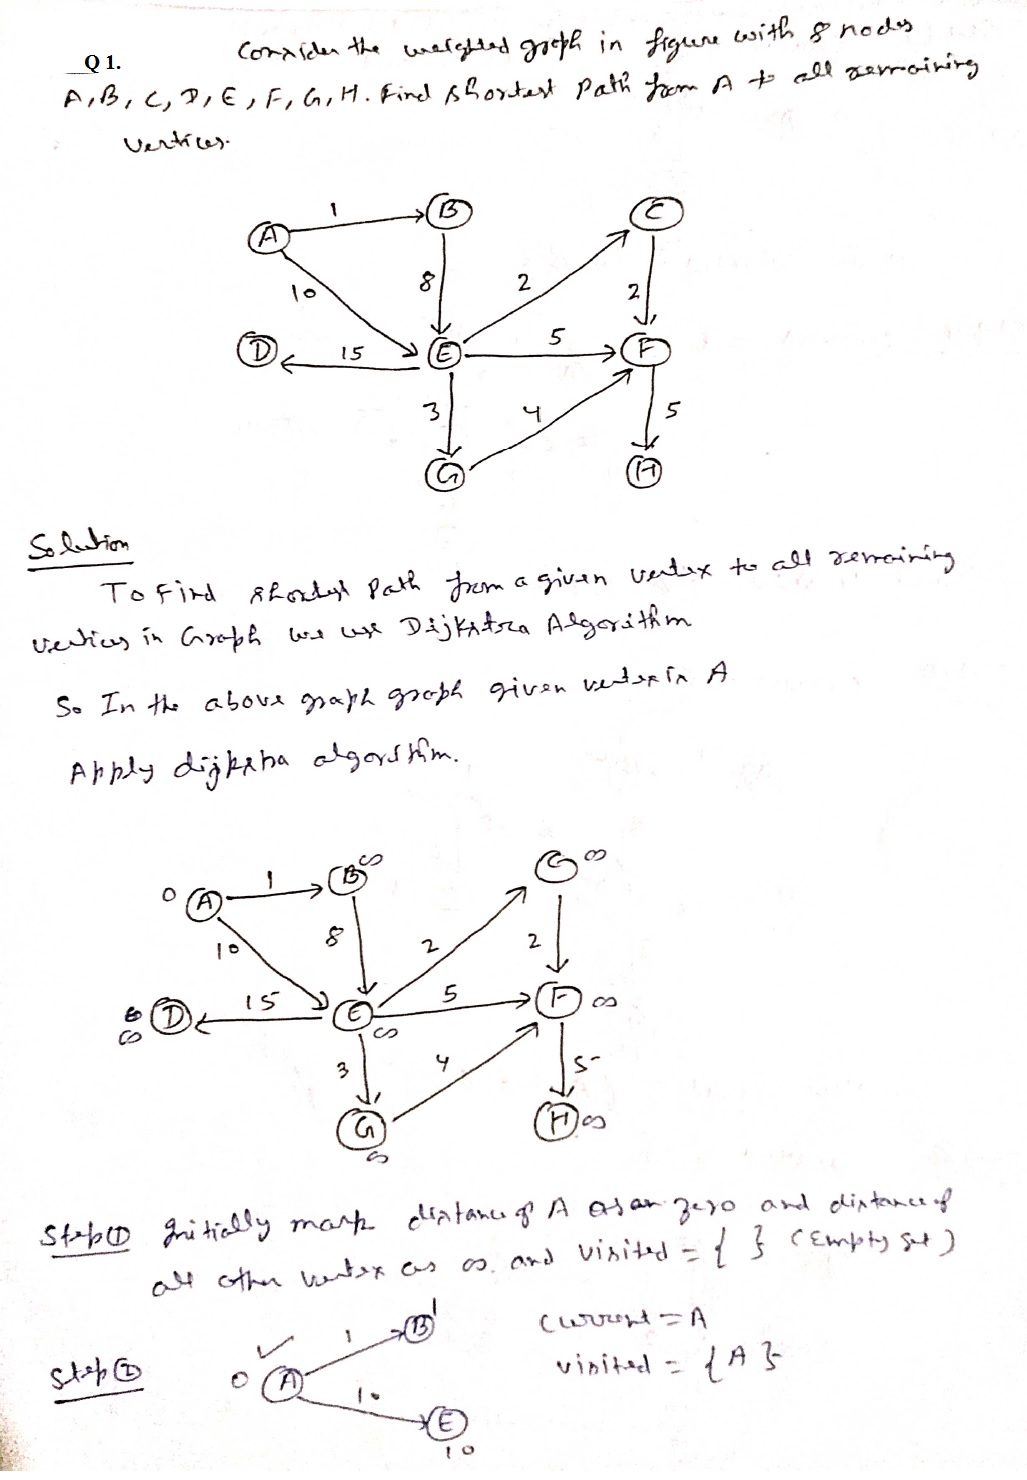 Q 1. Consider the weighted graph in figure with 8 nodes
A, B, C, D, E, F, G, H. Find shortest Path from A to all remaining
vertices.
1
A
B
C
10
8
2
2
D
15
E
5
F
3
4
5
G
H
Solution
To Find shortest Path from a given vertex to all remaining
vertices in Graph we use Dijkstra Algorithm
So In the above graph graph given vertex is A
Apply dijkstra algorithm.
0 A
1
B ∞
C ∞
10
8
2
2
∞ D
15
E ∞
5
F ∞
3
4
5
G ∞
H ∞
Step ① Initially mark distance of A as zero and distance of
all other vertex as ∞ and visited = { } (Empty set)
Step ②
0 A
1
B 1
10
E 10
current = A
visited = {A}